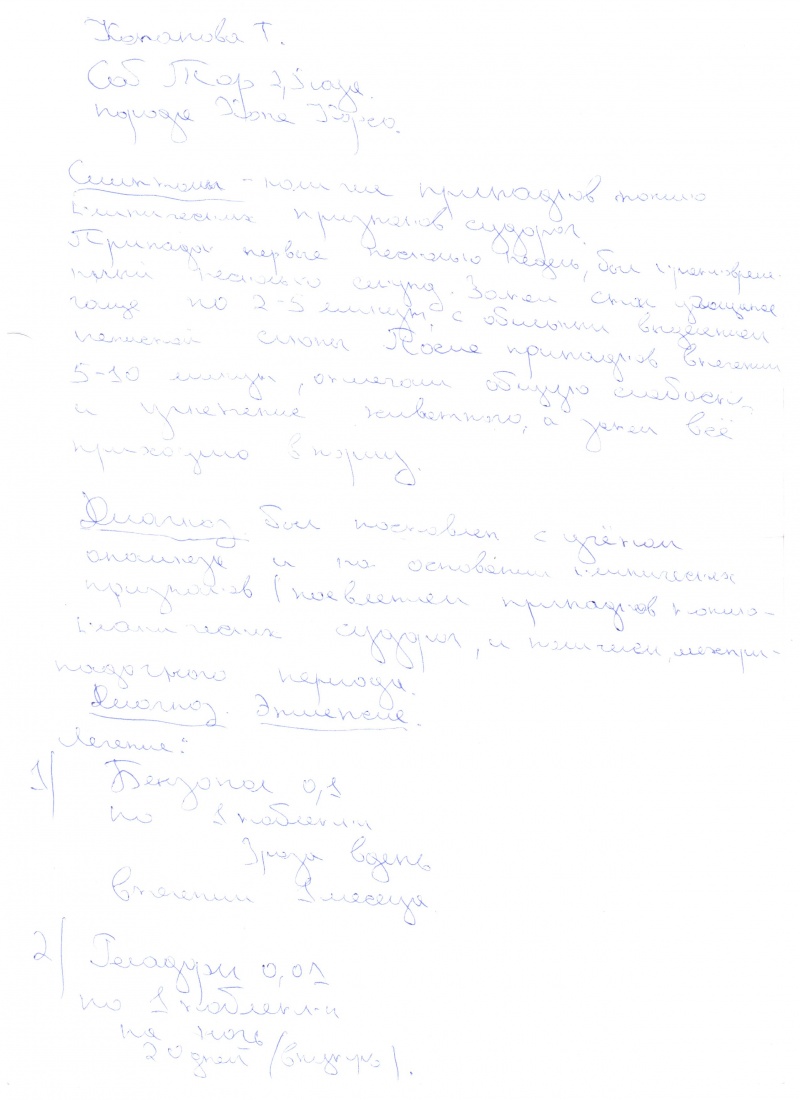 Капанова Т.
Соб Тор 2,5 года.
порода Кане Корсо.
Симптомы - наличие припадков тонико
клинических признаков судорог.
Припадок первые несколько недель, был кратковреме-
нный несколько секунд. Затем стал
чаще по 2-5 минут, с обильным выделением
пенистой слюны. После припадков в течении
5-10 минут, отмечали общую слабость,
и угнетение животного, а затем всё
приходило в норму.
Диагноз. был поставлен с учётом
анамнеза и на основании клинических
признаков (появлением припадков тонико-
клонических судорог, и наличием, межпри-
падочного периода.
Диагноз. Эпилепсие.
Лечение:
1) Бензонал 0,1
по 1 таблетки
3 раза в день
в течении 1 месяца
2) 0,01
по 1 таблетки
на ночь
20 дней (внутрь).